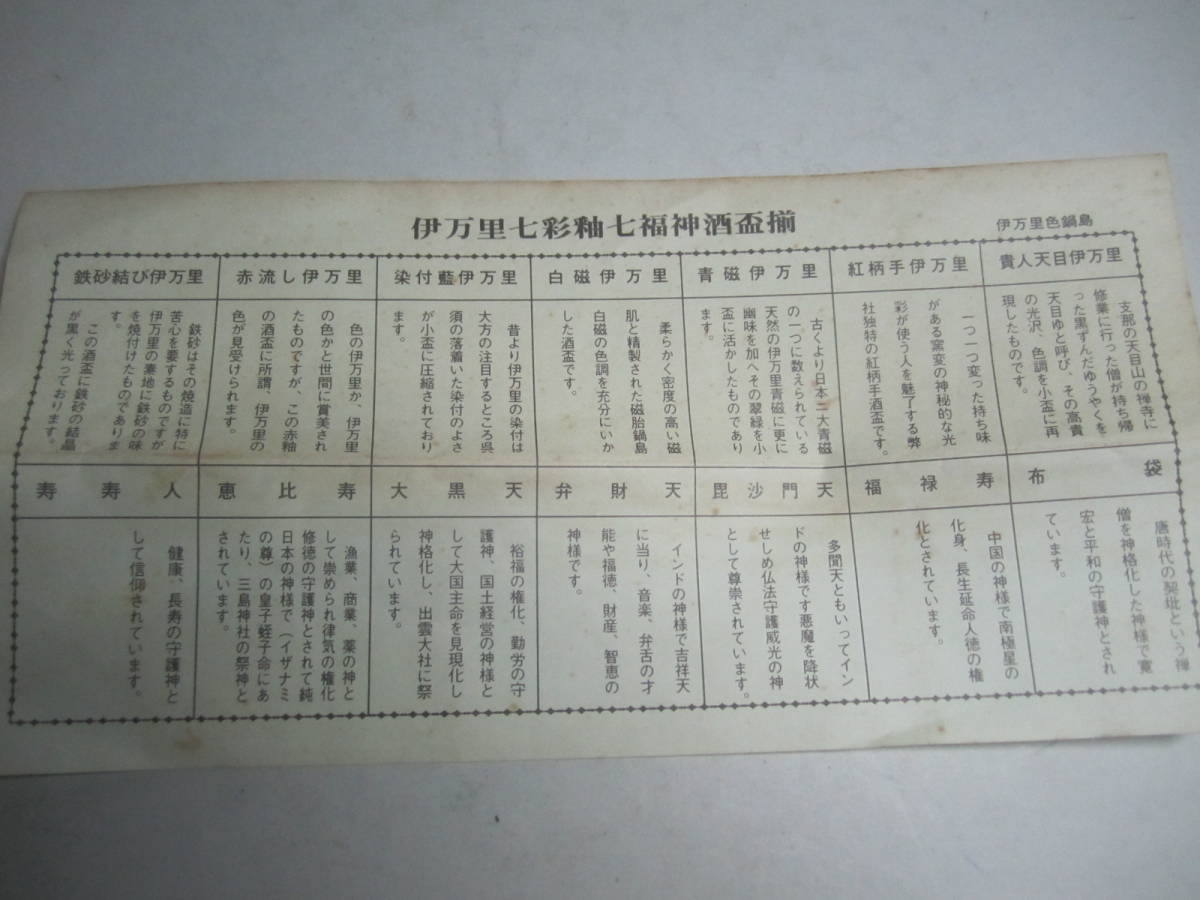 伊万里七彩釉七福神酒盃揃
伊万里色鍋島
貴人天目伊万里
支那の天目山の禅寺に
修業に行った僧が持ち帰
った黒ずんだゆうやくを
天目ゆと呼び、その高貴
の光沢、色調を小盃に再
現したものです。
紅柄手伊万里
一つ一つ変った持ち味
がある窯変の神秘的な光
彩が使う人を魅了する弊
社独特の紅柄手酒盃です。
青磁伊万里
古くより日本二大青磁
の一つに数えられている
天然の伊万里青磁に更に
幽味を加へその翠緑を小
盃に活かしたものであり
ます。
白磁伊万里
柔らかく密度の高い磁
肌と精製された磁胎鍋島
白磁の色調を充分にいか
した酒盃です。
染付藍伊万里
昔より伊万里の染付は
大方の注目するところ呉
須の落着いた染付のよさ
が小盃に圧縮されており
ます。
赤流し伊万里
色の伊万里か、伊万里
の色かと世間に賞美され
たものですが、この赤釉
の酒盃に所謂、伊万里の
色が見受けられます。
鉄砂結び伊万里
鉄砂はその焼造に特に
苦心を要するものですが
伊万里の素地に鉄砂の味
を焼付けたものでありま
す。
この酒盃に鉄砂の結晶
が黒く光っております。
布袋
唐時代の契玼という禅
僧を神格化した神様で寛
宏と平和の守護神とされ
ています。
福禄寿
中国の神様で南極星の
化身、長生延命人徳の権
化とされています。
毘沙門天
多聞天ともいってイン
ドの神様です悪魔を降状
せしめ仏法守護威光の神
として尊崇されています。
弁財天
インドの神様で吉祥天
に当り、音楽、弁舌の才
能や福徳、財産、智恵の
神様です。
大黒天
裕福の権化、勤労の守
護神、国土経営の神様と
して大国主命を見現化し
神格化し、出雲大社に祭
られています。
恵比寿
漁業、商業、薬の神と
して崇められ律気の権化
修徳の守護神とされて純
日本の神様で(イザナミ
の尊)の皇子蛭子命にあ
たり、三島神社の祭神と
されています。
寿寿人
健康、長寿の守護神と
して信仰されています。